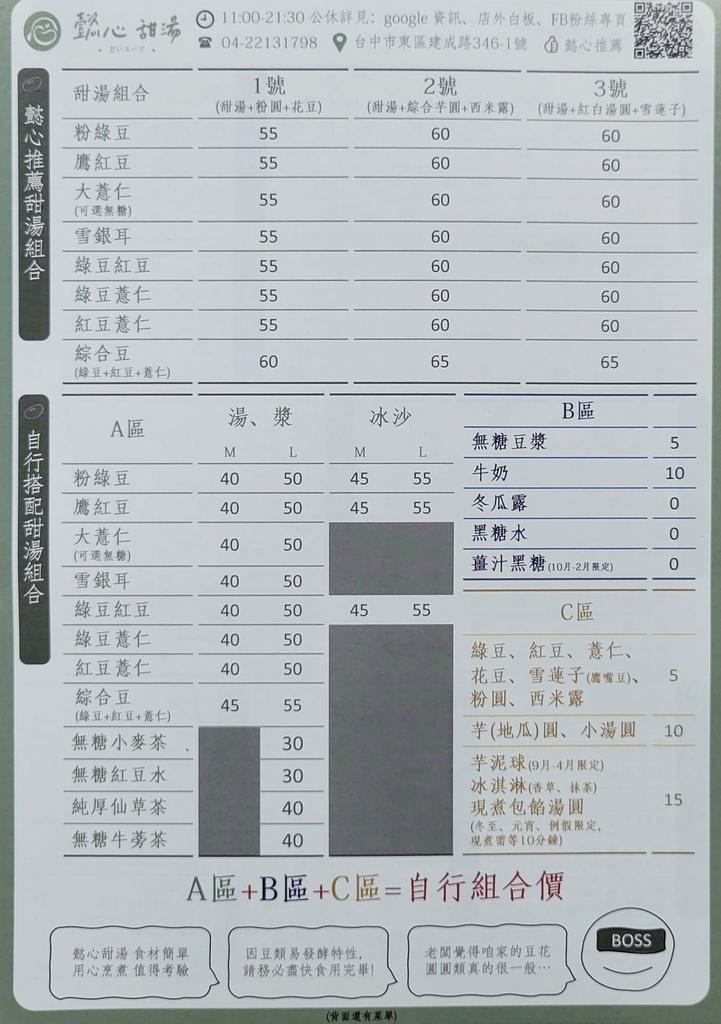 懿心 甜湯
• 甘いスープ •
11:00-21:30 公休詳見：google 資訊、店外白板、FB粉絲專頁
04-22131798 台中市東區建成路346-1號 懿心推薦
懿心推薦甜湯組合
甜湯組合 1號 2號 3號
(甜湯+粉圓+花豆) (甜湯+綜合芋圓+西米露) (甜湯+紅白湯圓+雪蓮子)
粉綠豆 55 60 60
鷹紅豆 55 60 60
大薏仁 55 60 60
(可選無糖)
雪銀耳 55 60 60
綠豆紅豆 55 60 60
綠豆薏仁 55 60 60
紅豆薏仁 55 60 60
綜合豆 60 65 65
(綠豆+紅豆+薏仁)
自行搭配甜湯組合
A區 湯、漿 冰沙
M L M L
粉綠豆 40 50 45 55
鷹紅豆 40 50 45 55
大薏仁 40 50
(可選無糖)
雪銀耳 40 50
綠豆紅豆 40 50 45 55
綠豆薏仁 40 50
紅豆薏仁 40 50
綜合豆 45 55
(綠豆+紅豆+薏仁)
無糖小麥茶 30
無糖紅豆水 30
純厚仙草茶 40
無糖牛蒡茶 40
B區
無糖豆漿 5
牛奶 10
冬瓜露 0
黑糖水 0
薑汁黑糖(10月-2月限定) 0
C區
綠豆、紅豆、薏仁、
花豆、雪蓮子(鷹嘴豆)、 5
粉圓、西米露
芋(地瓜)圓、小湯圓 10
芋泥球(9月-4月限定)
冰淇淋(香草、抹茶)
現煮包餡湯圓 15
(冬至、元宵、例假限定,
現煮需等10分鐘)
A區+B區+C區=自行組合價
懿心甜湯 食材簡單
用心烹煮 值得考驗
因豆類易發酵特性,
請務必盡快食用完畢!
老闆覺得咱家的豆花
圓圓類真的很一般…
BOSS
(背面還有菜單)